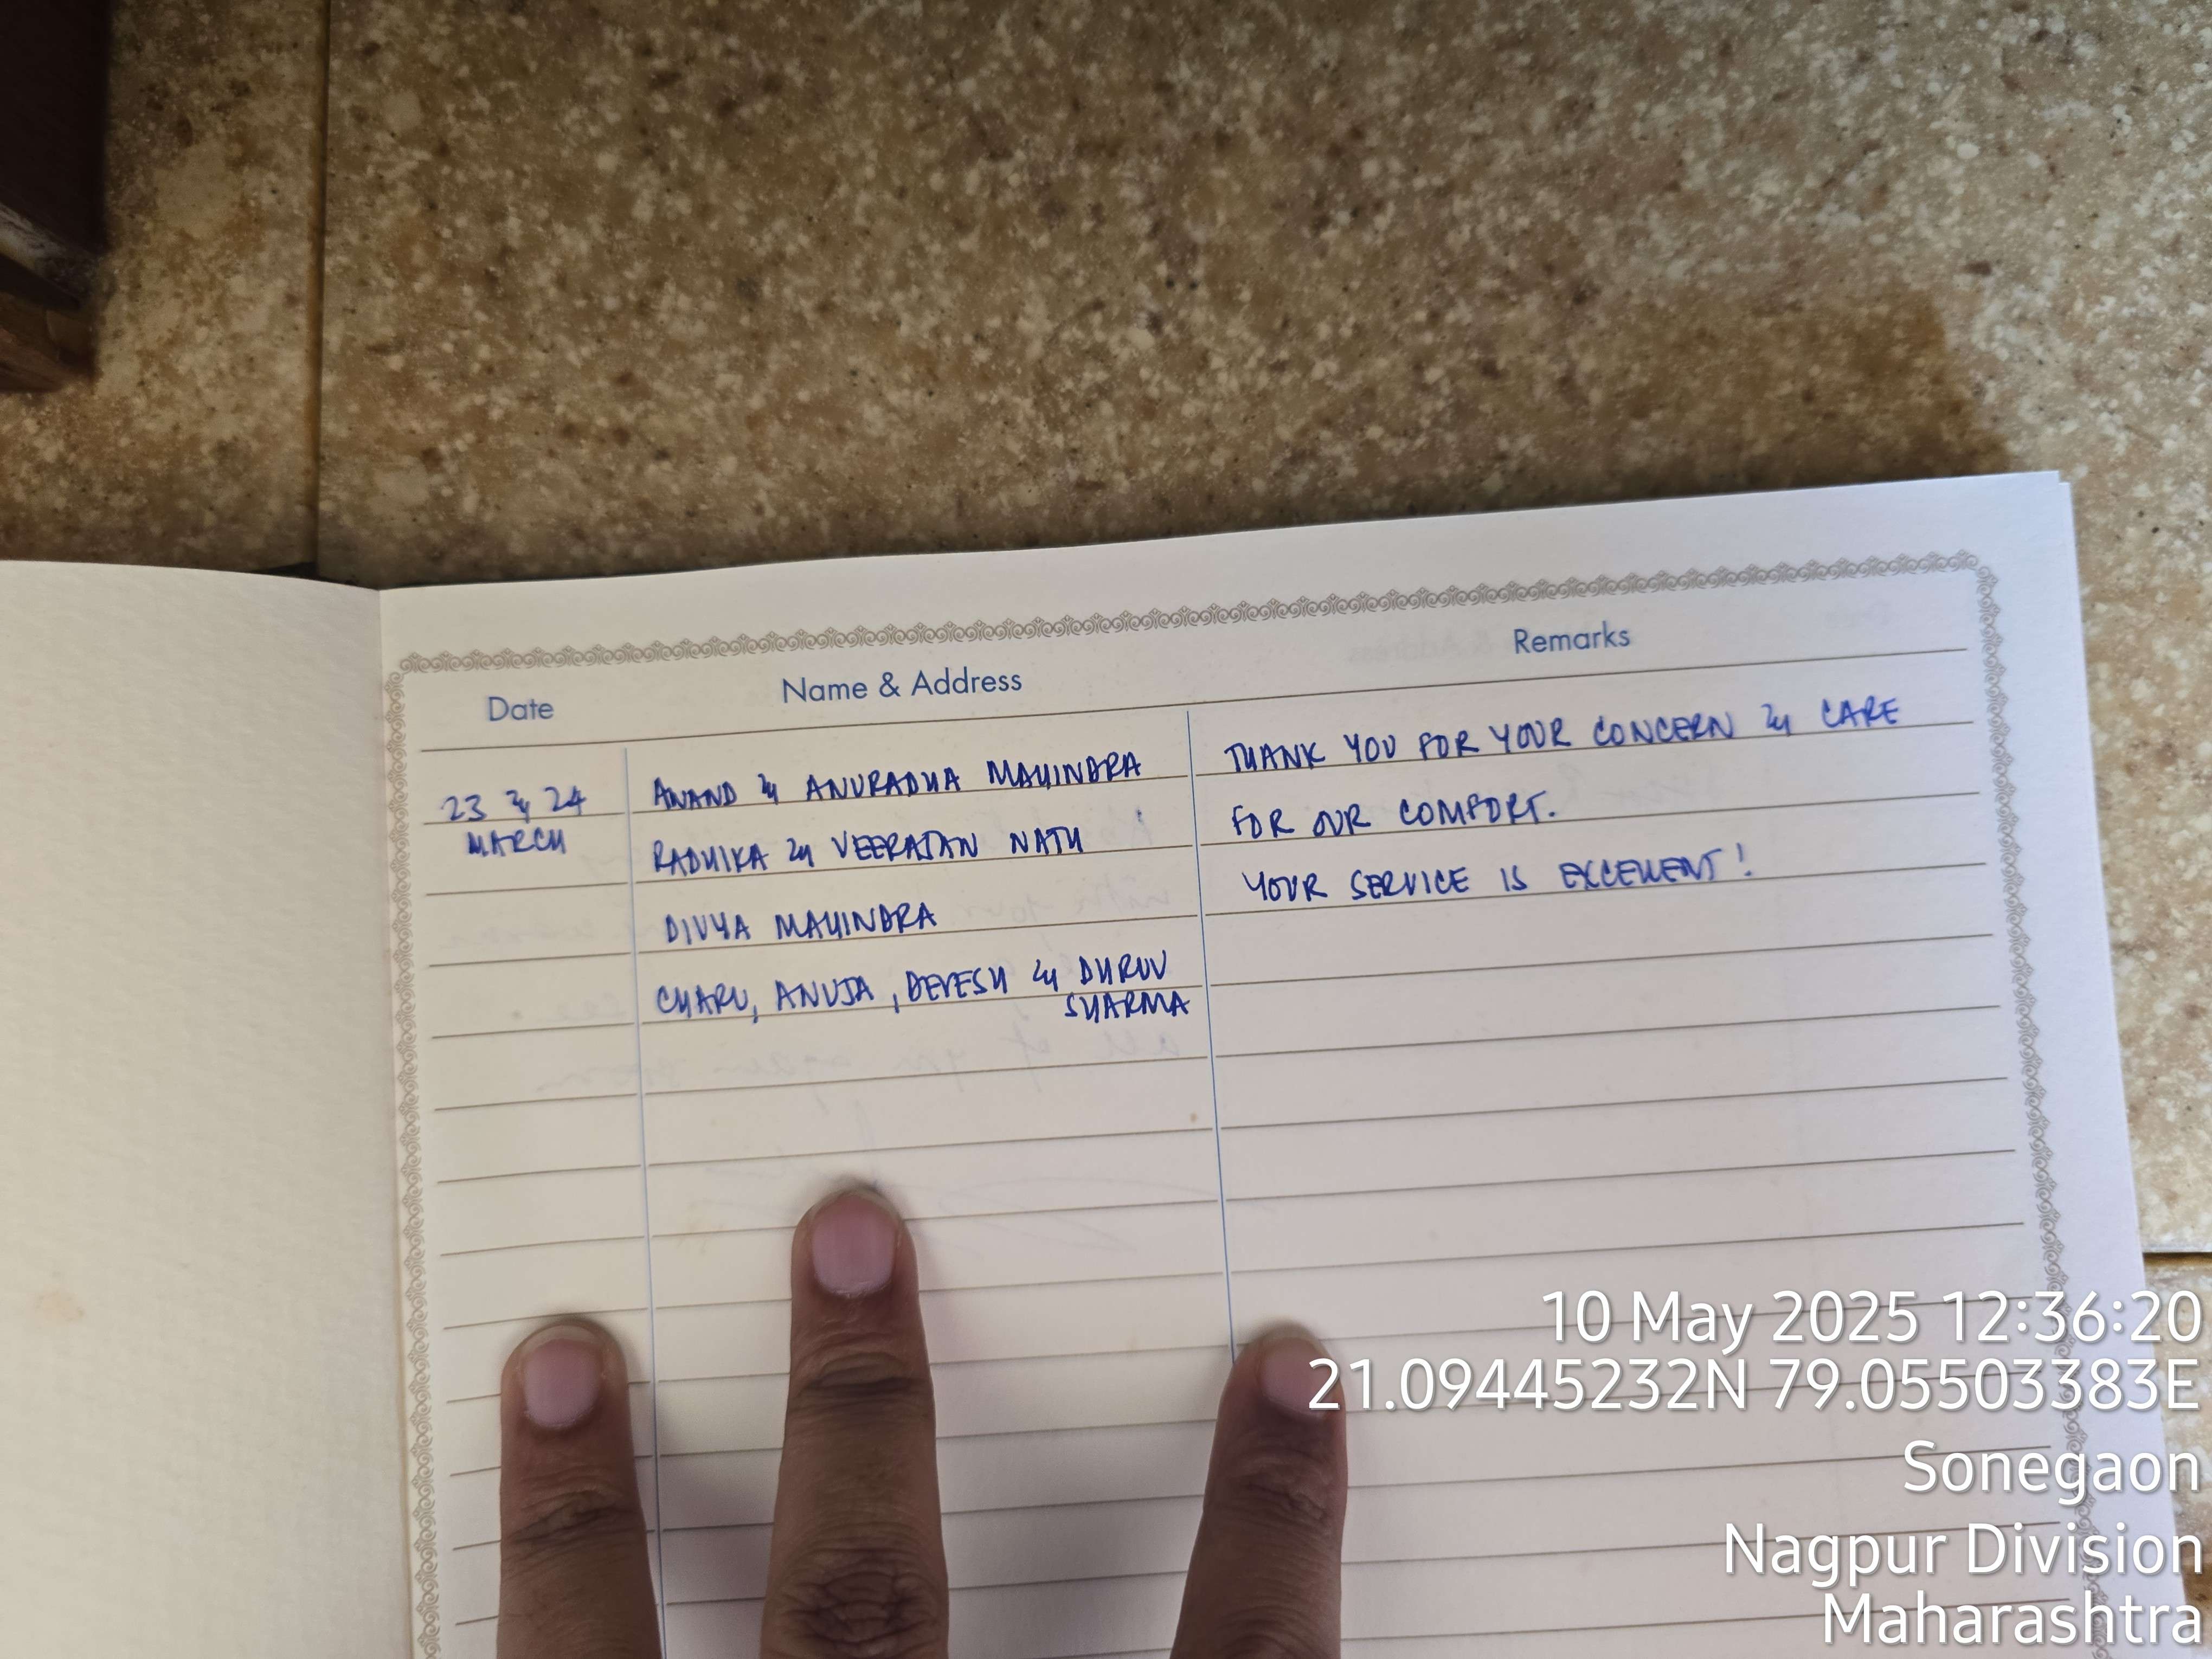 Date
Name & Address
Remarks
23 & 24
MARCH
ANAND & ANURADHA MAHINDRA
RADHIKA & VEERAJAN NATH
DIVYA MAHINDRA
CHARU, ANUJA, DEVESH & DHRUV
SHARMA
THANK YOU FOR YOUR CONCERN & CARE
FOR OUR COMFORT.
YOUR SERVICE IS EXCELLENT!
10 May 2025 12:36:20
21.09445232N 79.05503383E
Sonegaon
Nagpur Division
Maharashtra